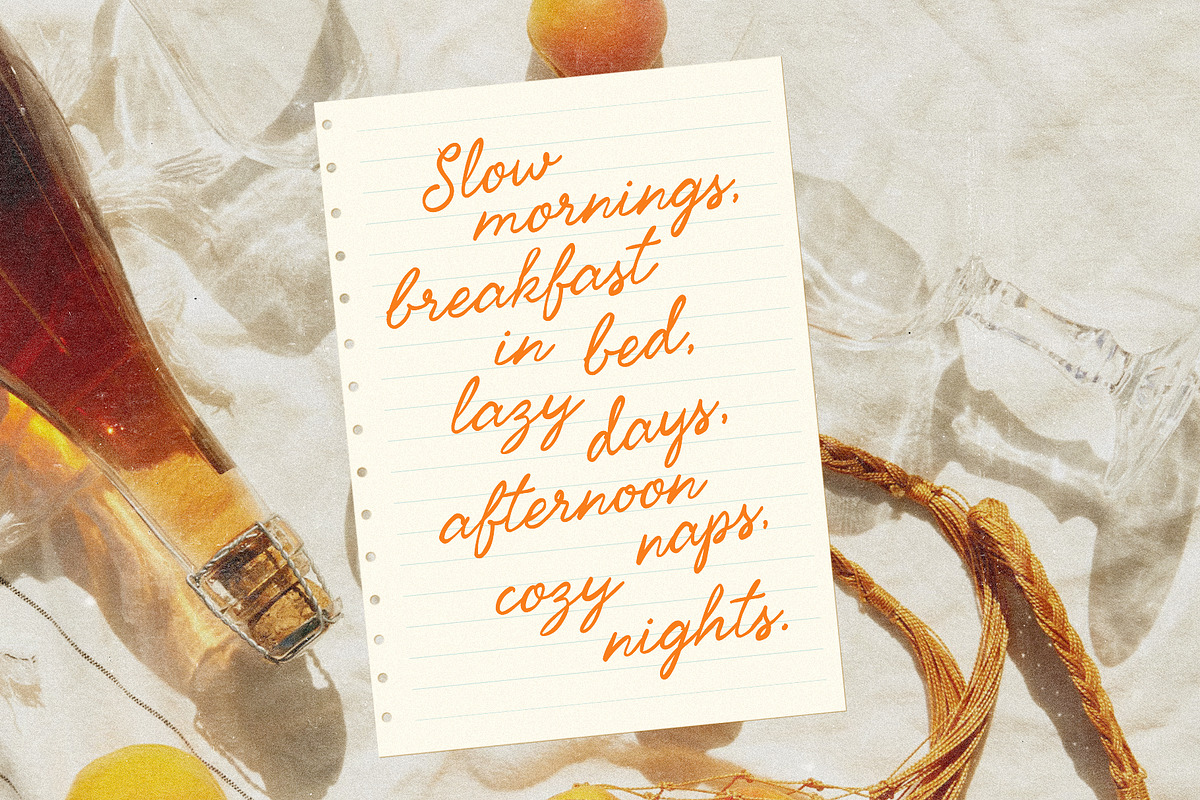 Slow
mornings,
breakfast
in bed,
lazy
days,
afternoon
naps,
cozy
nights.